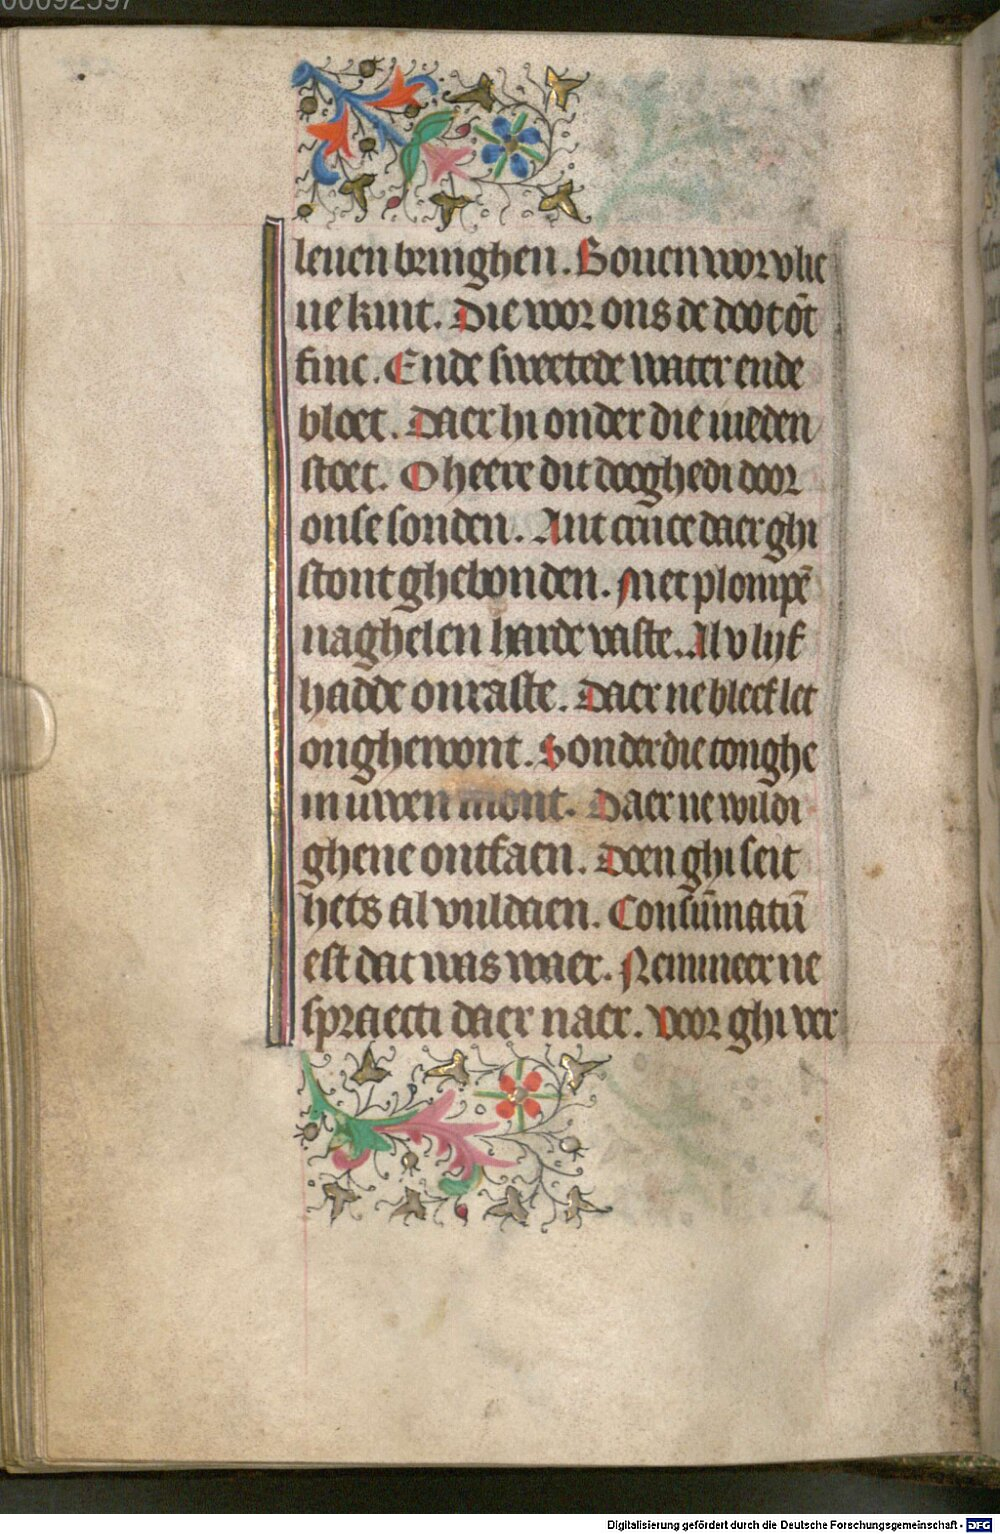 00092597
leuen bringhen. Bouen wor v lie
ue kint. Die voor ons de doot ōt
finc. Ende sweetede water ende
bloet. Daer hi onder die ioeden
stoet. O heere dit dooghedi door
onse sonden. Ant cruce daer ghi
stont ghebonden. Met plompē
naghelen harde vaste. Al v lijf
hadde onraste. Daer ne bleef let
onghewont. Sonder die tonghe
in uwen mont. Daer ne wildi
ghene ontfaen. Doen ghi seit
hets al vuldaen. Consūmatū
est dat was waer. Nemmeer ne
spraecti daer naer. Voor ghi ver
Digitalisierung gefördert durch die Deutsche Forschungsgemeinschaft - DFG